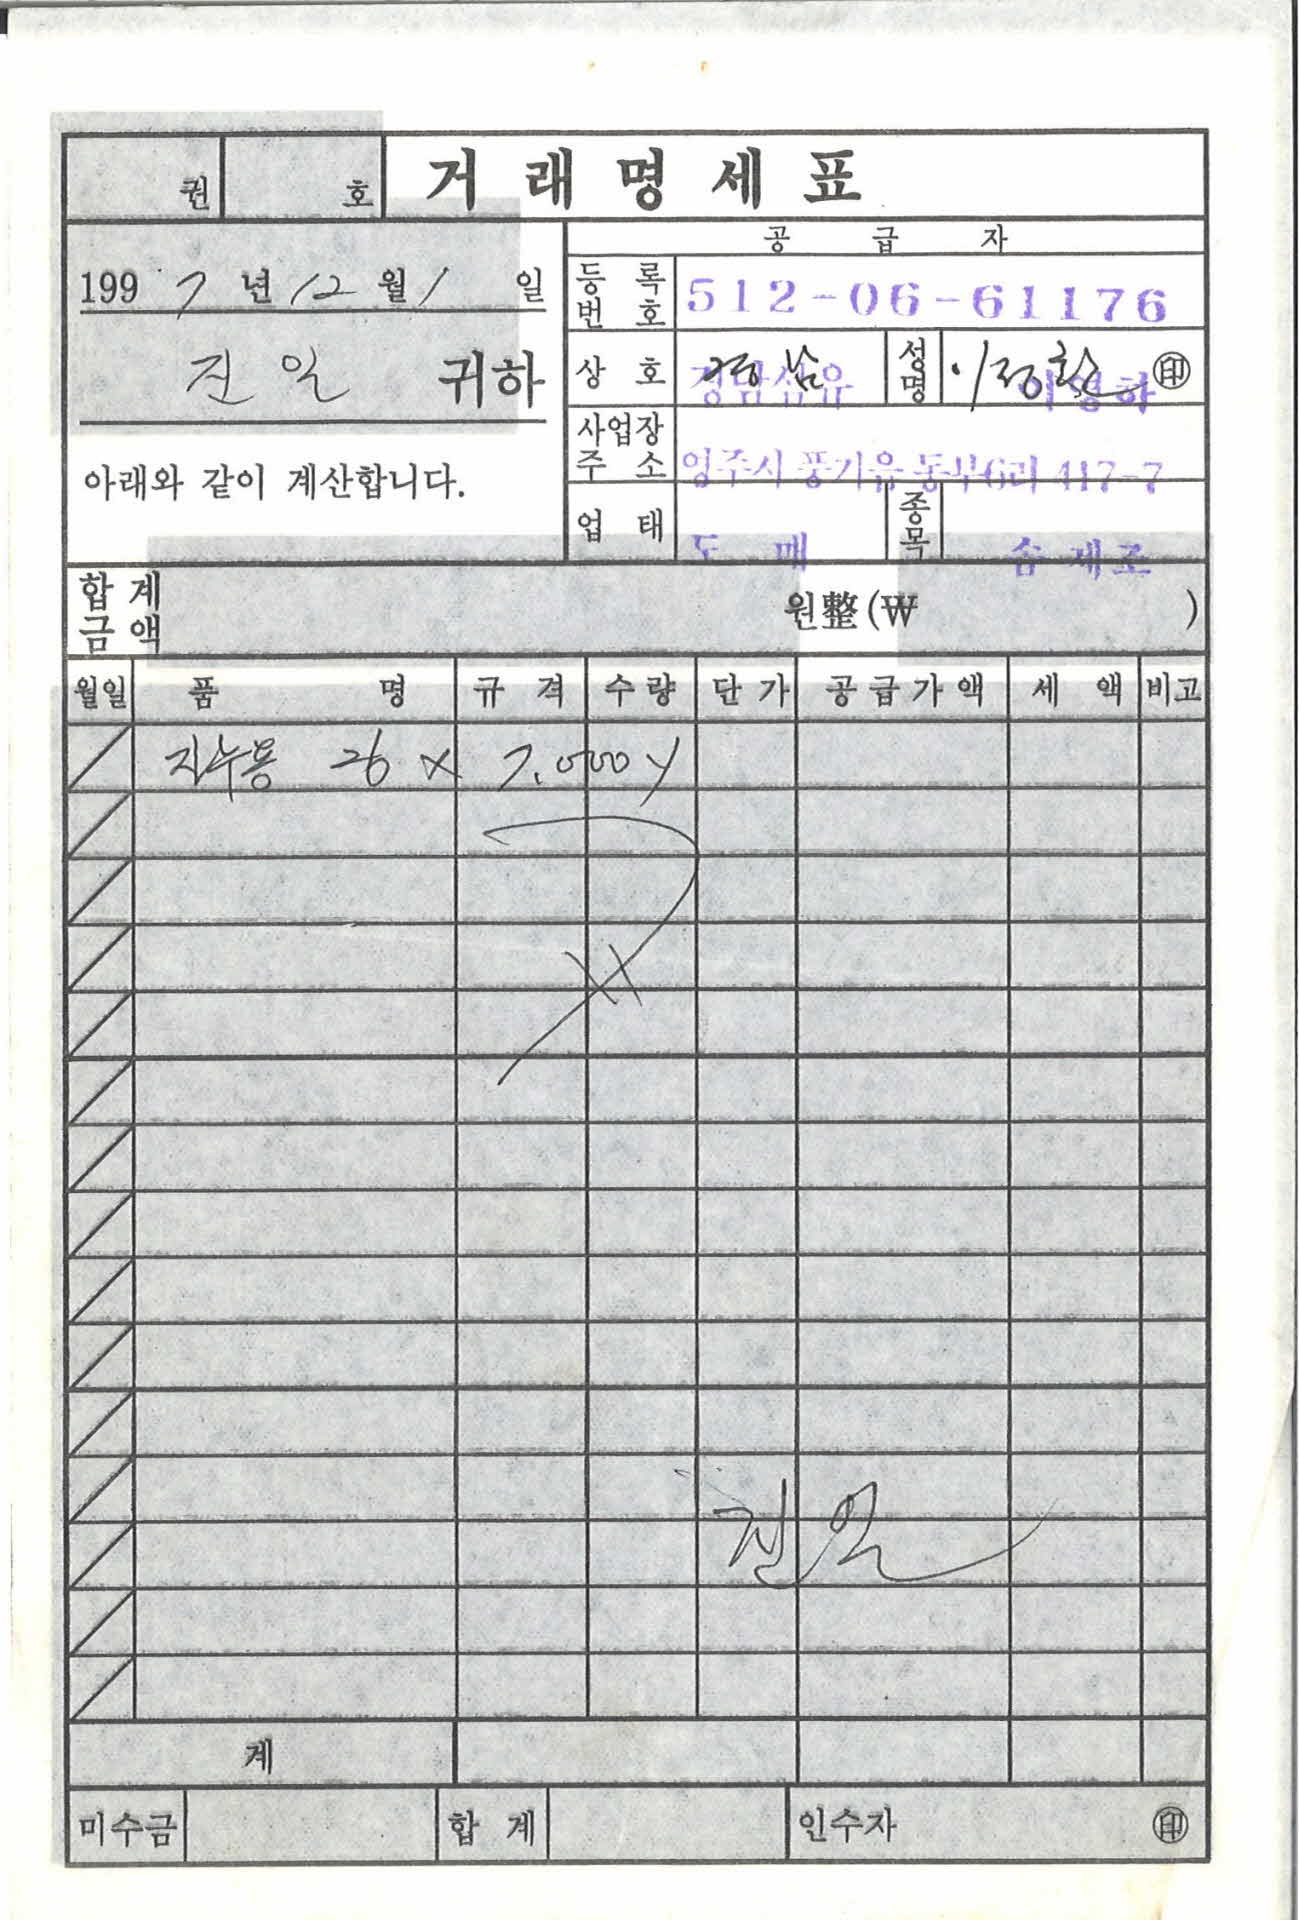 권 호 거래명세표
공급자
1997년 12월 1일
진일 귀하
아래와 같이 계산합니다.
등록번호 512-06-61176
상호 경남섬유 경남 성명 이영하
사업장주소 영주시 풍기읍 동부6리 417-7
업태 도매 종목 솜제조
합계금액 원整(₩ )
월일 품명 규격 수량 단가 공급가액 세액 비고
지누용 26 × 7.000 y
진일
계
미수금 합계 인수자 印